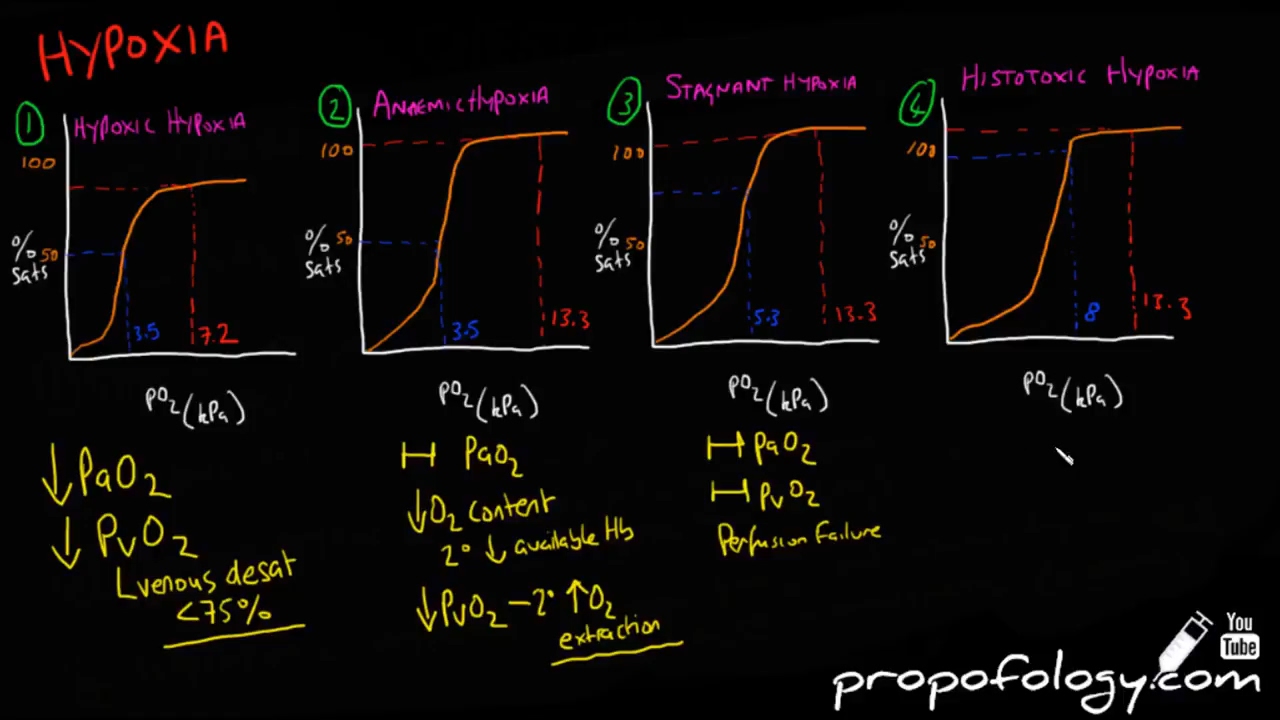 HYPOXIA
1
HYPOXIC HYPOXIA
100
% 50
Sats
3.5
7.2
PO2 (kPa)
↓ PaO2
↓ PvO2
venous desat
<75%
2
ANAEMIC HYPOXIA
100
% 50
Sats
3.5
13.3
PO2 (kPa)
PaO2
↓ O2 content
2° ↓ available Hb
↓ PvO2 – 2° ↑ O2
extraction
3
STAGNANT HYPOXIA
100
% 50
Sats
5.3
13.3
PO2 (kPa)
PaO2
PvO2
Perfusion Failure
4
HISTOTOXIC HYPOXIA
100
% 50
Sats
8
13.3
PO2 (kPa)
You
Tube
propofology.com